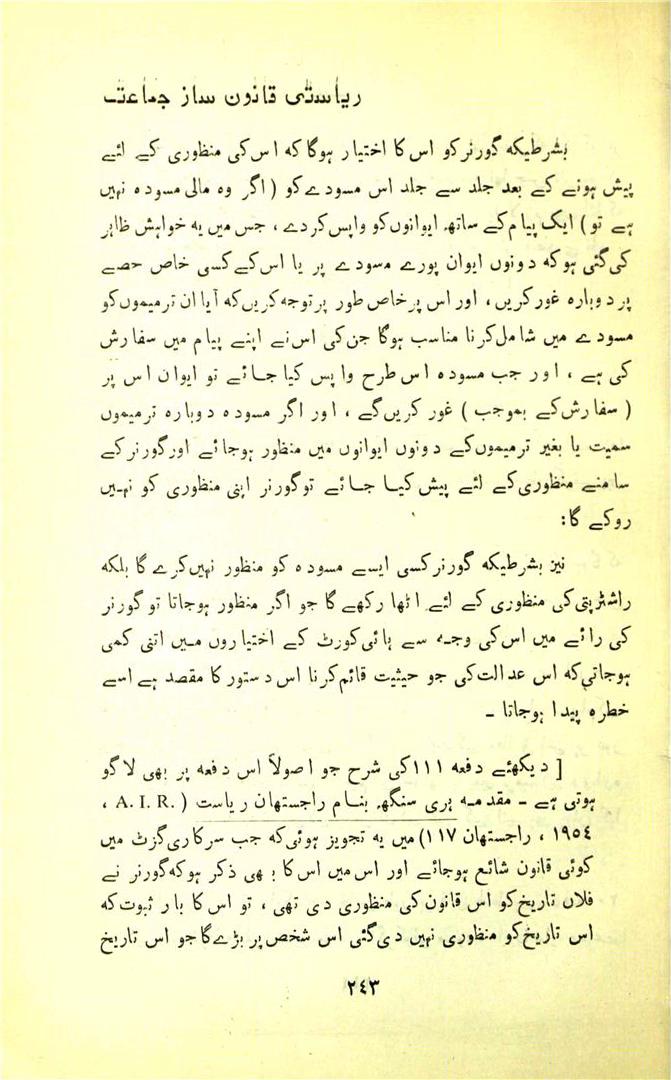 ریاستی قانون ساز جماعت
بشرطیکہ گورنر کو اس کا اختیار ہوگا کہ اس کی منظوری کے لئے
پیش ہونے کے بعد جلد سے جلد اس مسودے کو ( اگر وہ مالی مسودہ نہیں
ہے تو ) ایک پیام کے ساتھ ایوانوں کو واپس کر دے ، جس میں یہ خواہش ظاہر
کی گئی ہو کہ دونوں ایوان پورے مسودے پر یا اس کے کسی خاص حصے
پر دوبارہ غور کریں ، اور اس پر خاص طور پر توجہ کریں کہ آیا ان ترمیموں کو
مسودے میں شامل کرنا مناسب ہوگا جن کی اس نے اپنے پیام میں سفارش
کی ہے ، اور جب مسودہ اس طرح واپس کیا جائے تو ایوان اس پر
( سفارش کے بموجب ) غور کریں گے ، اور اگر مسودہ دوبارہ ترمیموں
سمیت یا بغیر ترمیموں کے دونوں ایوانوں میں منظور ہوجائے اور گورنر کے
سامنے منظوری کے لئے پیش کیا جائے تو گورنر اپنی منظوری کو نہیں
روکے گا:
نیز بشرطیکہ گورنر کسی ایسے مسودہ کو منظور نہیں کرے گا بلکہ
راشٹرپتی کی منظوری کے لئے اٹھا رکھے گا جو اگر منظور ہوجاتا تو گورنر
کی رائے میں اس کی وجہ سے ہائی کورٹ کے اختیاروں میں اتنی کمی
ہوجاتی کہ اس عدالت کی جو حیثیت قائم کرنا اس دستور کا مقصد ہے اسے
خطرہ پیدا ہوجاتا ۔
[ دیکھئے دفعہ ۱۱۱ کی شرح جو اصولاً اس دفعہ پر بھی لاگو
ہوتی ہے ۔ مقدمہ ہری سنگھ بنام راجستھان ریاست ( .A. I. R ،
۱۹۵٤ ، راجستھان ۱۱۷) میں یہ تجویز ہوئی کہ جب سرکاری گزٹ میں
کوئی قانون شائع ہوجائے اور اس میں اس کا بھی ذکر ہو کہ گورنر نے
فلاں تاریخ کو اس قانون کی منظوری دی تھی ، تو اس کا بار ثبوت کہ
اس تاریخ کو منظوری نہیں دی گئی اس شخص پر پڑے گا جو اس تاریخ
۲٤۳